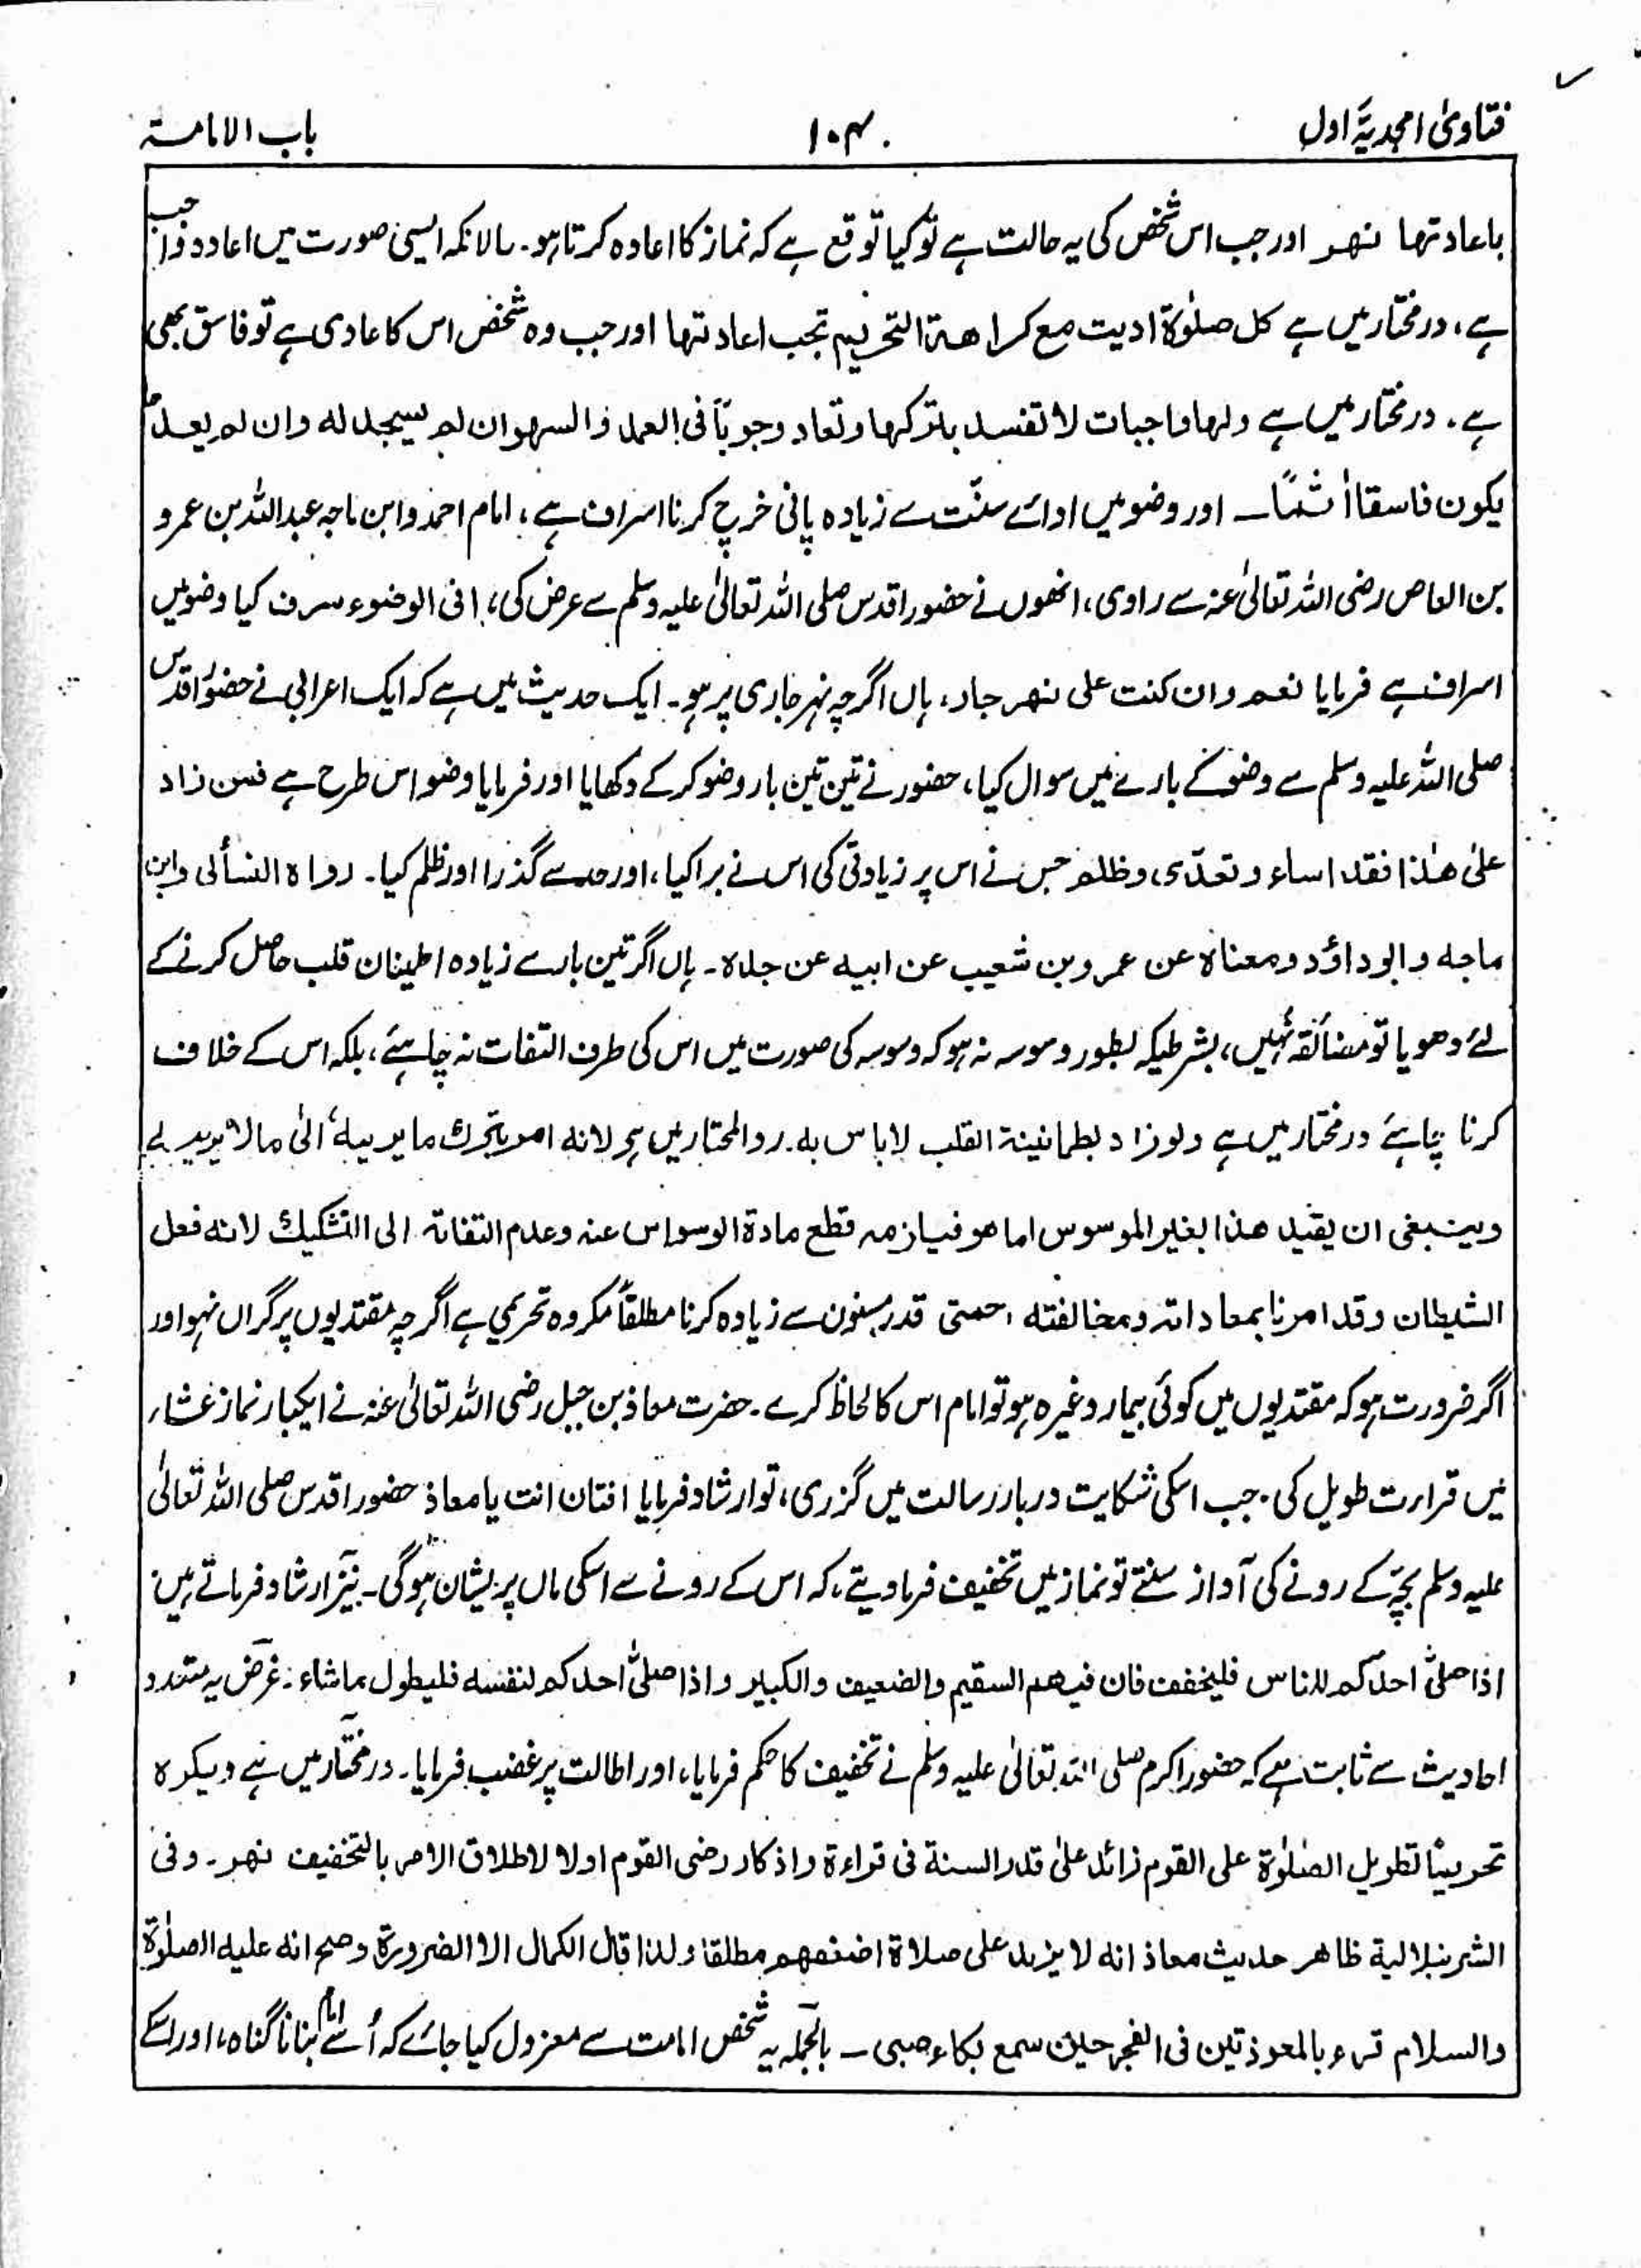 فتاویٰ امجدیہ اول
۱۰۴
باب الامامۃ
باعادتہا نہر اور جب اس شخص کی یہ حالت ہے تو کیا توقع ہے کہ نماز کا اعادہ کرتا ہو۔ حالانکہ ایسی صورت میں اعادہ واجب
ہے، درمختار میں ہے کل صلوٰۃ ادیت مع کراھۃ التحریم تجب اعادتہا اور جب وہ شخص اس کا عادی ہے تو فاسق بھی
ہے۔ درمختار میں ہے ولہا واجبات لا تفسد بترکہا وتعاد وجوباً فی العمد والسھو ان لم یسجد لہ وان لم یعدہا
یکون فاسقا اٰثمًا۔ اور وضو میں ادائے سنّت سے زیادہ پانی خرچ کرنا اسراف ہے، امام احمد و ابن ماجہ عبداللہ بن عمرو
بن العاص رضی اللہ تعالیٰ عنہ سے راوی، انھوں نے حضور اقدس صلی اللہ تعالیٰ علیہ وسلم سے عرض کی، افی الوضوء سرف کیا وضو میں
اسراف ہے فرمایا نعم وان کنت علی نھر جار، ہاں اگرچہ نہر جاری پر ہو۔ ایک حدیث میں ہے کہ ایک اعرابی نے حضور اقدس
صلی اللہ علیہ وسلم سے وضو کے بارے میں سوال کیا، حضور نے تین تین بار وضو کرکے دکھایا اور فرمایا وضو اس طرح ہے فمن زاد
علیٰ ھٰذا فقد اساء وتعدّی وظلم جس نے اس پر زیادتی کی اس نے برا کیا، اور حد سے گذرا اور ظلم کیا۔ رواہ النسأی وابن
ماجہ وابوداؤد ومعناہ عن عمرو بن شعیب عن ابیہ عن جدہ۔ ہاں اگر تین بار سے زیادہ اطمینان قلب حاصل کرنے کے
لئے دھویا تو مضائقہ نہیں، بشرطیکہ بطور وسوسہ نہ ہو کہ وسوسہ کی صورت میں اس کی طرف التفات نہ چاہئے، بلکہ اس کے خلاف
کرنا چاہئے درمختار میں ہے ولو زاد بطمانینۃ القلب لاباس بہ۔ ردالمحتار میں ہے لانہ امر بترک ما یریبہ الیٰ مالا یریبہ
وینبغی ان یقید ھذا بغیر الموسوس اما ھو فیلزمہ قطع مادۃ الوسواس عنہ وعدم التفاتہ الی التشکیک لانہ فعل
الشیطان وقد امرنا بمعاداتہ ومخالفتہ رحمتی قدر مسنون سے زیادہ کرنا مطلقاً مکروہ تحریمی ہے اگرچہ مقتدیوں پر گراں نہو اور
اگر ضرورت ہو کہ مقتدیوں میں کوئی بیمار وغیرہ ہو تو امام اس کا لحاظ کرے۔ حضرت معاذ بن جبل رضی اللہ تعالیٰ عنہ نے ایکبار نماز عشاء
میں قرارت طویل کی۔ جب اسکی شکایت دربار رسالت میں گزری، تو ارشاد فرمایا افتان انت یا معاذ حضور اقدس صلی اللہ تعالیٰ
علیہ وسلم بچّے کے رونے کی آواز سنتے تو نماز میں تخفیف فرما دیتے، کہ اس کے رونے سے اسکی ماں پریشان ہوگی۔ نیز ارشاد فرماتے ہیں:
اذا صلیّٰ احدکم للناس فلیخفف فان فیھم السقیم والضعیف والکبیر واذا صلیّٰ احدکم لنفسہ فلیطول ماشاء۔ غرض یہ متعدد
احادیث سے ثابت ہے کہ حضور اکرم صلی اللہ تعالیٰ علیہ وسلم نے تخفیف کا حکم فرمایا، اور اطالت پر غضب فرمایا۔ درمختار میں ہے ویکرہ
تحریمًا تطویل الصلوٰۃ علی القوم زائد علیٰ قدر السنۃ فی قراءۃ واذکار رضی القوم اولا لاطلاق الامر بالتخفیف نھر۔ وفی
الشرنبلالیۃ ظاھر حدیث معاذ انہ لا یزید علی صلاۃ اضعفھم مطلقا ولذا قال الکمال الا الضرورۃ وصح انہ علیہ الصلوٰۃ
والسلام قرء بالمعوذتین فی الفجر حین سمع بکاء صبی۔ بالجملہ یہ شخص امامت سے معزول کیا جائے کہ اُسے امام بنانا گناہ، اور اسکے